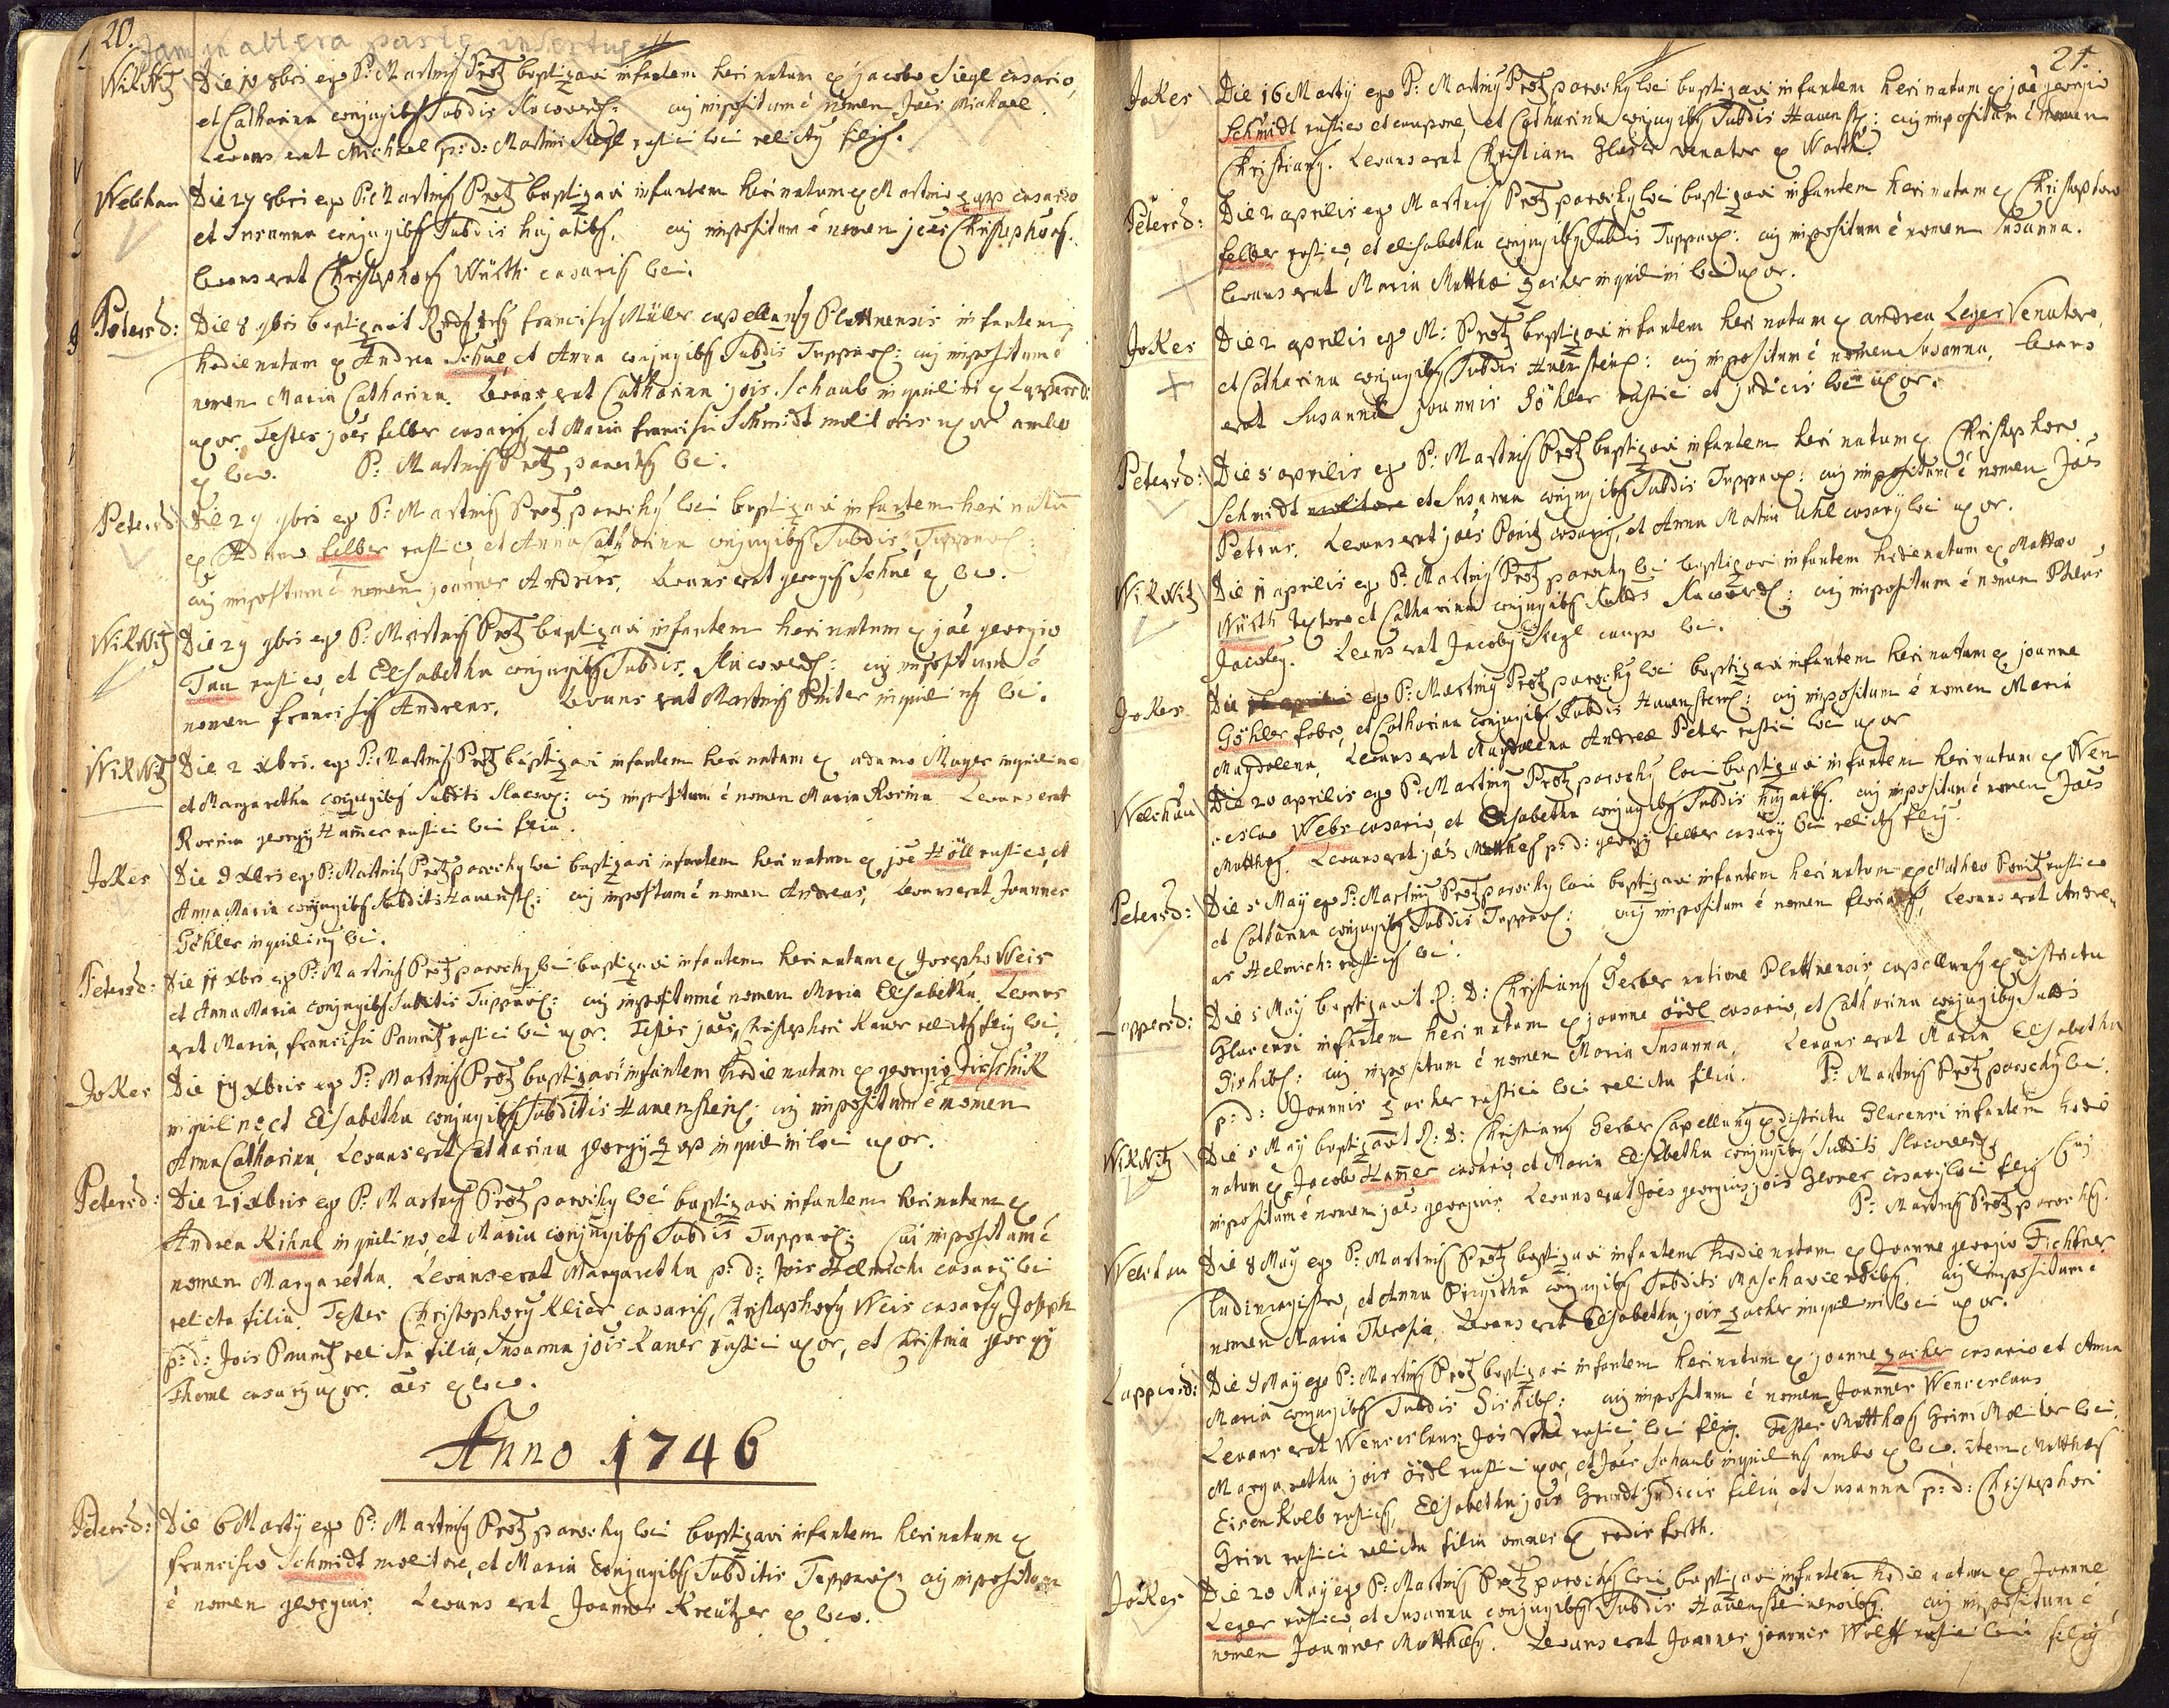 20.
Jam in altera parte insertus
Wikwitz Die 10 8bris ego P: Martinus Protz baptizavi infantem heri natum ex jacobo Siegl casario,
et Catharina conjugibus Subdis Slacowers: cuj impositum é nomen Joes Michael
Levans erat Michael p: d: Martini Siegl rustici loci relictus filius.
Welchau Die 27 8bris ego P: Martinus Protz baptizavi infantem heri natum ex Martino Zapp casario
et Susanna conjugibus Subdis hujatibus. cuj impositum é nomen joes Christophorus.
levans erat Christophorus Würth casarius loci.
Petersd: Die 8 9bris baptizavit Rndus franciscus Müller capellanus Plattnensis infantem
hodie natam ex Andrea Schne et Anna conjugibus Subdis Tuppau: cuj impositum é
nomen Maria Catharina. Levans erat Catharina jois Schaub inquilini ex Lappersd:
uxor, Testes joes felber casarius, et Maria francisci Schmidt molitoris uxor ambo
ex loco. P: Martinus Protz parochus loci.
Petersd: Die 29 9bris ego P: Martinus Protz parochus loci baptizavi infantem heri natum
ex Adamo felber rustico, et Anna Catharina conjugibus Subdis Tuppau:
cuj impositum é nomen joannes Andreas. Levans erat georgius Schne ex loco.
Wikwitz Die 29 9bris ego P: Martinus Protz baptizavi infantem heri natum ex joe georgio
Tau rustico, et Elisabetha conjugibus Subdis Slacowers: cuj impositum é
nomen franciscus Andreas. Levans erat Martinus Reiter inquilinus loci.
Wikwitz Die 2 Xbris. ego P: Martinus Protz baptizavi infantem heri natam ex adamo Mayer inquilino
et Margaretha conjugibus Subdits Slacow: cuj impositum é nomen Maria Rosina Levans erat
Rosina georgij Hamer rustici loci filia.
Jokes Die 9 Xbris ego P: Martinus Protz parochus loci baptizavi infantem heri natum ex joe Höll rustico, et
Anna Maria conjugibus Subditis Hauenst: cuj impositum é nomen Andreas, Levans erat Joannes
Göhler inquilinus loci.
Petersd: Die 11 Xbris ego P: Martinus Protz parochus loci baptizavi infantem heri natam ex Josepho Weis
et Anna Maria conjugibus Subditis Tuppau: cuj impositum é nomen Maria Elisabetha. Levans
erat Maria, francisci Paunitz rustici loci uxor. Testes joes Christophori Kauer relictus filius loci.
Jokes Die 19 Xbris ego P: Martinus Protz baptizavi infantem hodie natam ex georgio Jirschick
inquilino, et Elisabetha conjugibus Subditis Hauenstein: cuj impositum é nomen
Anna Catharina, Levans erat Catharina georgij Zapp inquilini loci uxor.
Petersd: Die 21 Xbris ego P: Martinus Protz parochus loci baptizavi infantem heri natam ex
Andrea Kihnl inquilino, et Maria conjugibus Subdis Tuppau: cui impositum é
nomen Margaretha. Levans erat Margaretha p: d: Jois Helmich casarij loci
relicta filia. Testes Christophorus Klier casarius, Christophorus Weis casarius, Joseph
p: d: Jois Paunitz relicta filia, Susanna jois Kauer rustici uxor, et Christina georgij
Thoml casarij uxor. oēs ex loco.
Anno 1746
Petersd: Die 6 Martij ego P: Martinus Protz parochus loci baptizavi infantem heri natum ex
francisco Schmidt molitore, et Maria Conjugibus Subditis Tuppau: cuj impositum
é nomen georgius. Levans erat Joannes Kreützer ex loco.
21.
Jokes Die 16 Martij ego P: Martinus Protz parochus loci baptizavi infantem heri natum ex joe georgio
Schmidt rustico et caupone, et Catharina conjugibus Subdis Hauenst: cuj impositum é nomen
Christianus. Levans erat Christian Glaser venator ex Warth.
Petersd: Die 2 aprilis ego Martinus Protz parochus loci baptizavi infantem heri natam ex Christophoro
felber rustico, et elisabetha conjugibus Subdis Tuppau: cuj impositum é nomen Susanna.
Levans erat Maria Matthai Zacher inquilini loci uxor.
Jokes Die 2 aprilis ego M: Protz baptizavi infantem heri natam ex andrea Leger Venatore,
et Catharina conjugibus Subdis Hauenstein: cuj impositum é nomen Susanna, levans
erat Susanna joannis Göhler rustici et judicis loci uxor.
Petersd: Die 5 aprilis ego P: Martinus Protz baptizavi infantem heri natum ex Christophoro
Schmidt molitore et Susanna conjugibus Subdis Tuppau: cuj impositum é nomen Joes
Petrus. Levans erat joes Panitz casarius, et Anna Martin Uhl casarij loci uxor.
Wikwitz Die 11 aprilis ego P: Martinus Protz parochus loci baptizavi infantem hodie natum ex Mattheo
Würth textore et Catharina conjugibus Subdis Slacowerd: cuj impositum é nomen Joes
Jacobus. Levans erat Jacobus Siegl caupo loci.
Jokes Die 16 aprilis ego P: Martinus Protz parochus loci baptizavi infantem heri natam ex joanne
Göhler fabro, et Catharina conjugibus Subdis Hauenstein: cuj impositum é nomen Maria
Magdalena, Levans erat Magdalena Andreæ Peter rustici loci uxor
Welchau Die 20 aprilis ego P: Martinus Protz parochus loci baptizavi infantem heri natum ex Wen
ceslao Webr casario, et Elisabetha conjugibus Subdis hujatibus. cuj impositum é nomen Joes
Matthæus. Levans erat joes Mattheus p: d: georgij felber casarij loci relictus filius.
Petersd: Die 5 Maij ego P: Martinus Protz parochus loci baptizavi infantem heri natum ex Matheo Panitz rustico
et Catharina conjugibus Subdis Tuppau: cuj impositum é nomen florianus, Levans erat Andre
as Helmich: rusticus loci.
Lappersd: Die 5 Maij baptizavit R: D: Christianus Gerber natione Plattnensis capellanus ex districtu
Glacensi infantem heri natam ex joanne ördl casario, et Catharina conjugibus Subdis
Gishibl: cuj impositum é nomen Maria Susanna, Levans erat Maria Elisabetha
p: d: Joannis Zacher rustici loci relicta filia. P: Martinus Protz parochus loci.
Wikwitz Die 5 Maij baptizavit R: D: Christianus Gerber Capellanus ex districtu Glacensi infantem hodie
natum ex Jacobo Hamer casario, et Maria Elisabetha conjugibus Subdits Slacowerd: cuj
impositum é nomen joes georgius. Levans erat Joes georgius jois Gerner casarij loci filius
P: Martinus Protz parochus.
Welchau Die 8 Maij ego P: Martinus Protz baptizavi infantem hodie natam ex Joanne georgio Fichtner
ludimagistro, et Anna Brigitha conjugibus Subditis Maschaviensibus. cuj impositum é
nomen Maria Theresia. Levans erat Elisabetha jois Zacher inquilini loci uxor.
Lappersd: Die 9 Maij ego P: Martinus Protz baptizavi infantem heri natum ex joanne Zacher casario et Anna
Maria conjugibus Subdis Gishibl: cuj impositum é nomen Joannes Wenceslaus
Levans erat Wenceslaus Jois rustici loci filius. Testes Matthæus Grim Molitor loci.
Margaretha jois ördl rustici uxor, et Joes Schaub inquilinus ambo ex loco. item Matthæus
Eisenkolb rusticus, Elisabetha jois Grundt judicis filia, et Susanna p: d: Christophori
Grim rustici relicta filia omnes ex Rodisforth.
Jokes Die 20 Maij ego P: Martinus Protz parochus loci baptizavi infantem hodie natum ex Joanne
Leger rustico, et Susanna conjugibus Subdis Hauensteinensibus. cuj impositum é
nomen Joannes Matthæus. Levans erat Joannes joannis Wolff rustici loci filius